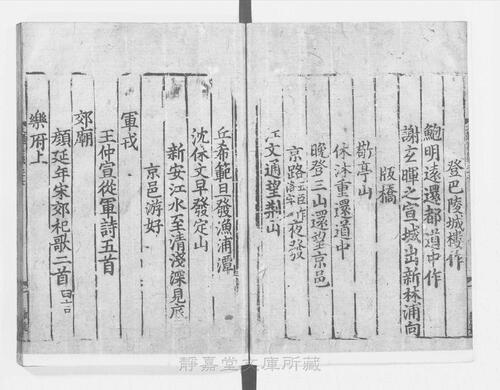 登巴陵城樓作
鮑明遠還都道中作
謝玄暉之宣城出新林浦向
版橋
敬亭山
休沐重還道中
晚登三山還望京邑
京路夜發
江文通望荊山
丘希範旦發漁浦潭
沈休文早發定山
新安江水至清淺深見底
京邑游好
軍戎
王仲宣從軍詩五首
郊廟
顏延年宋郊祀歌二首
樂府上
靜嘉堂文庫所藏